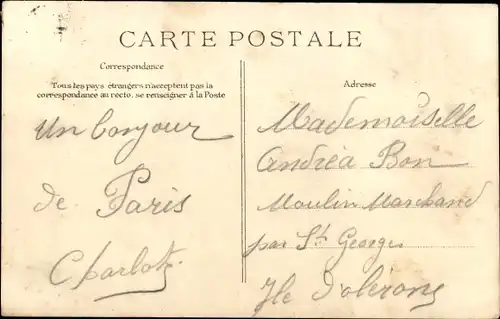 CARTE POSTALE
Correspondance
Tous les pays étrangers n'acceptent pas la
correspondance au recto, se renseigner à la Poste
Un bonjour
de Paris
Charlot
Adresse
Mademoiselle
Andréa Bon
Moulin Marchand
par St Georges
Ile d'olérons